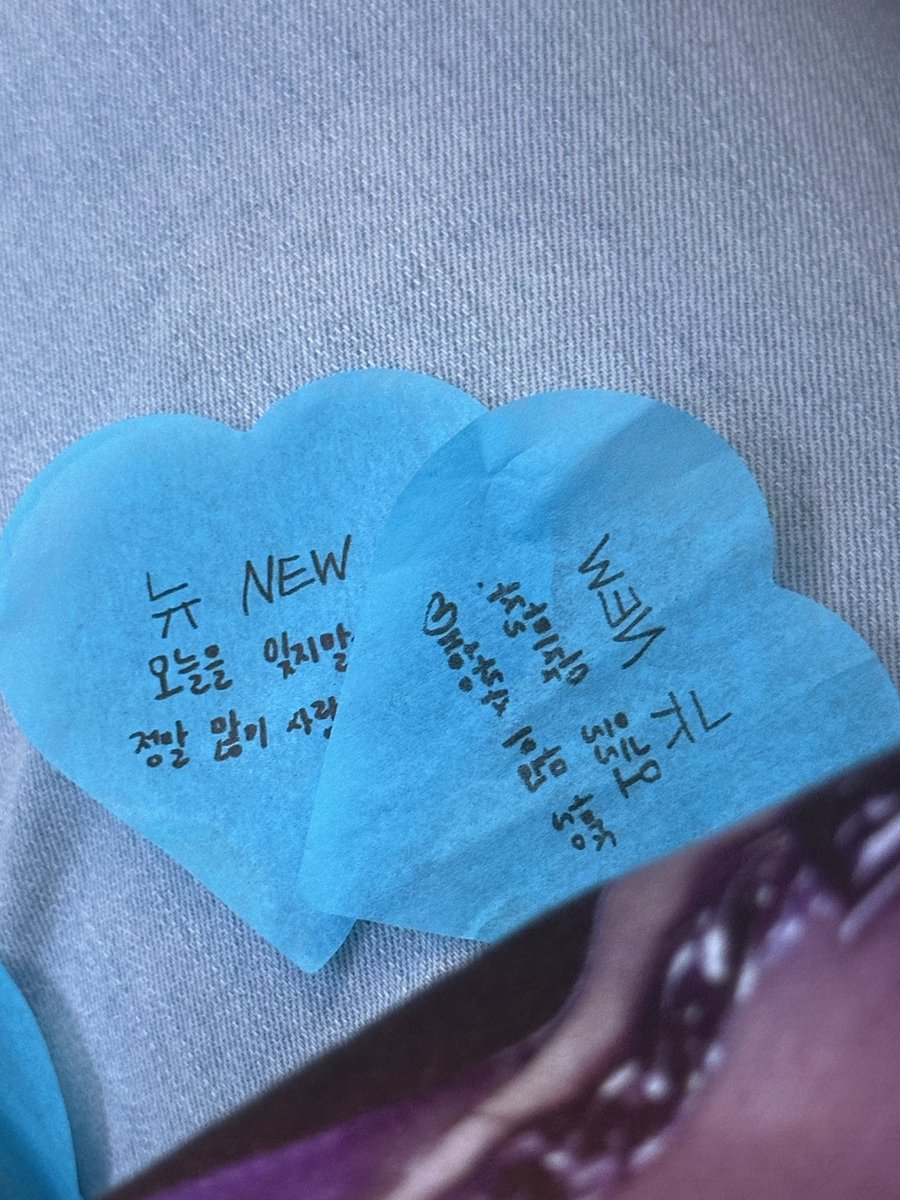 뉴 NEW
오늘을 잊지말
정말 많이 사랑
뉴 NEW
오늘을 잊지말자.
정말 많이 사랑해♡